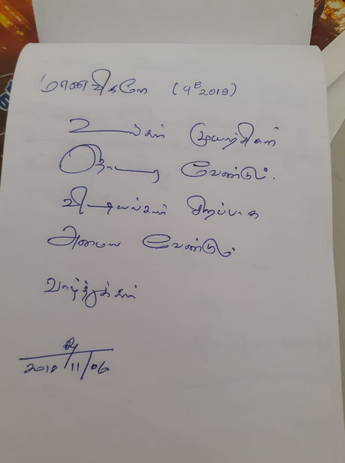 மாணவிகளே (4B 2019)
உங்கள் முயற்சிகள்
தொடர வேண்டும்.
விடியல்கள் சிறப்பாக
அமைய வேண்டும்
வாழ்த்துக்கள்
2018/11/06